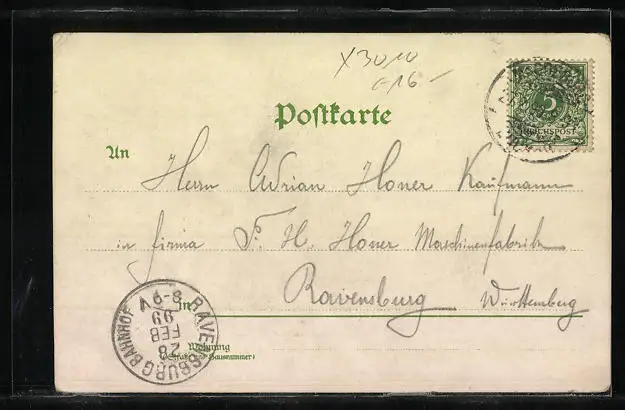 x3010
€16-
Postkarte
5
REICHSPOST
An
Herrn Adrian Honer Kaufmann
in firma F. H. Honer Maschinenfabrik
in Ravensburg Württemberg
RAVENSBURG BAHNHOF
28
FEB
99
V 8-9
Wohnung
(Straße und Hausnummer)